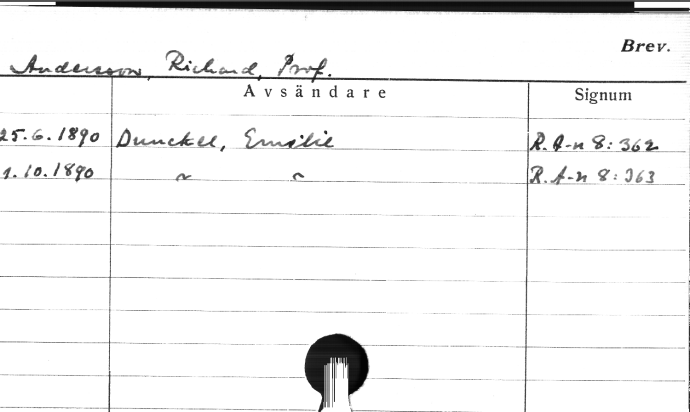 Brev.
Andersson, Richard, Prof.
Avsändare Signum
25.6.1890 Dunckel, Emilie R. A-n 8:362
1.10.1890 ~ ~ R. A-n 8:363